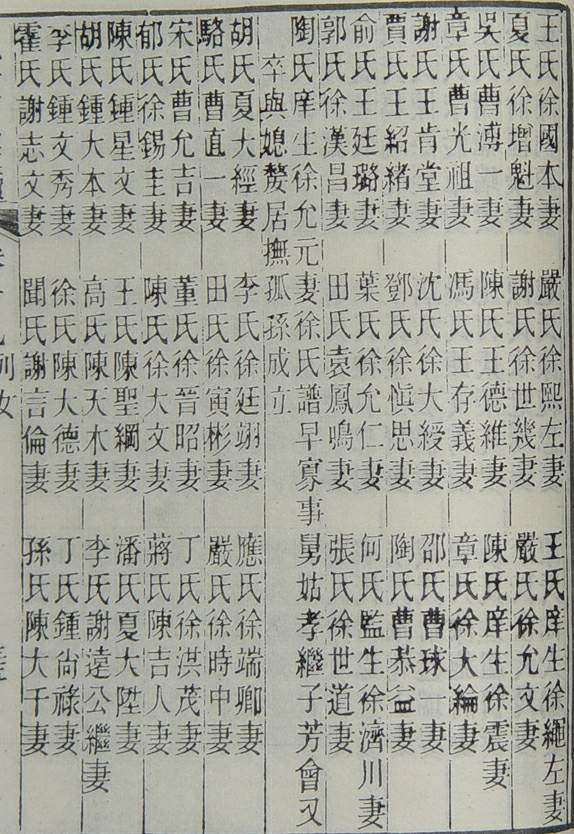 王氏徐國本妻 嚴氏徐熙左妻 王氏庠生徐繩左妻
夏氏徐增魁妻 謝氏徐世幾妻 嚴氏徐允文妻
吳氏曹溥一妻 陳氏王德維妻 陳氏庠生徐震妻
章氏曹光祖妻 馮氏王存義妻 章氏徐大綸妻
謝氏王肯堂妻 沈氏徐大綬妻 邵氏曹球一妻
賈氏王紹緒妻 鄧氏徐愼思妻 陶氏曹恭益妻
俞氏王廷璐妻 葉氏徐允仁妻 何氏監生徐濟川妻
郭氏徐漢昌妻 田氏袁鳳鳴妻 張氏徐世道妻
陶氏庠生徐允元妻徐氏譜早寡事舅姑孝繼子芳會又
卒與媳嫠居撫孤孫成立
胡氏夏大經妻 李氏徐廷翊妻 應氏徐端卿妻
駱氏曹直一妻 田氏徐寅彬妻 嚴氏徐時中妻
宋氏曹允吉妻 董氏徐晉昭妻 丁氏徐洪茂妻
郁氏徐錫圭妻 陳氏徐大文妻 蔣氏陳吉人妻
陳氏鍾星文妻 王氏陳聖綱妻 潘氏夏大陞妻
胡氏鍾大本妻 高氏陳天木妻 李氏謝遠公繼妻
李氏鍾文秀妻 徐氏陳大德妻 丁氏鍾尙祿妻
霍氏謝志文妻 聞氏謝言倫妻 孫氏陳大千妻
列女